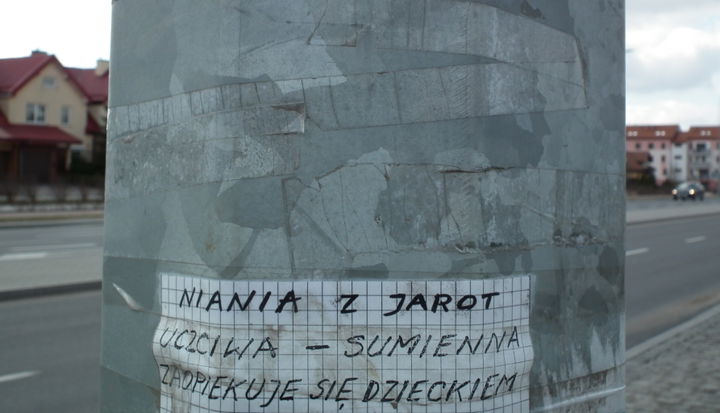 NIANIA Z JAROT
UCZCIWA – SUMIENNA
ZAOPIEKUJE SIĘ DZIECKIEM